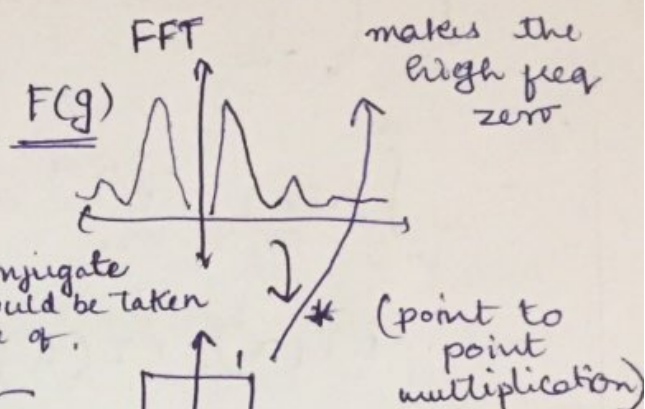 FFT
makes the
high freq
zero
F(g)
onjugate
ould be taken
e of.
* (point to
point
multiplication)
1